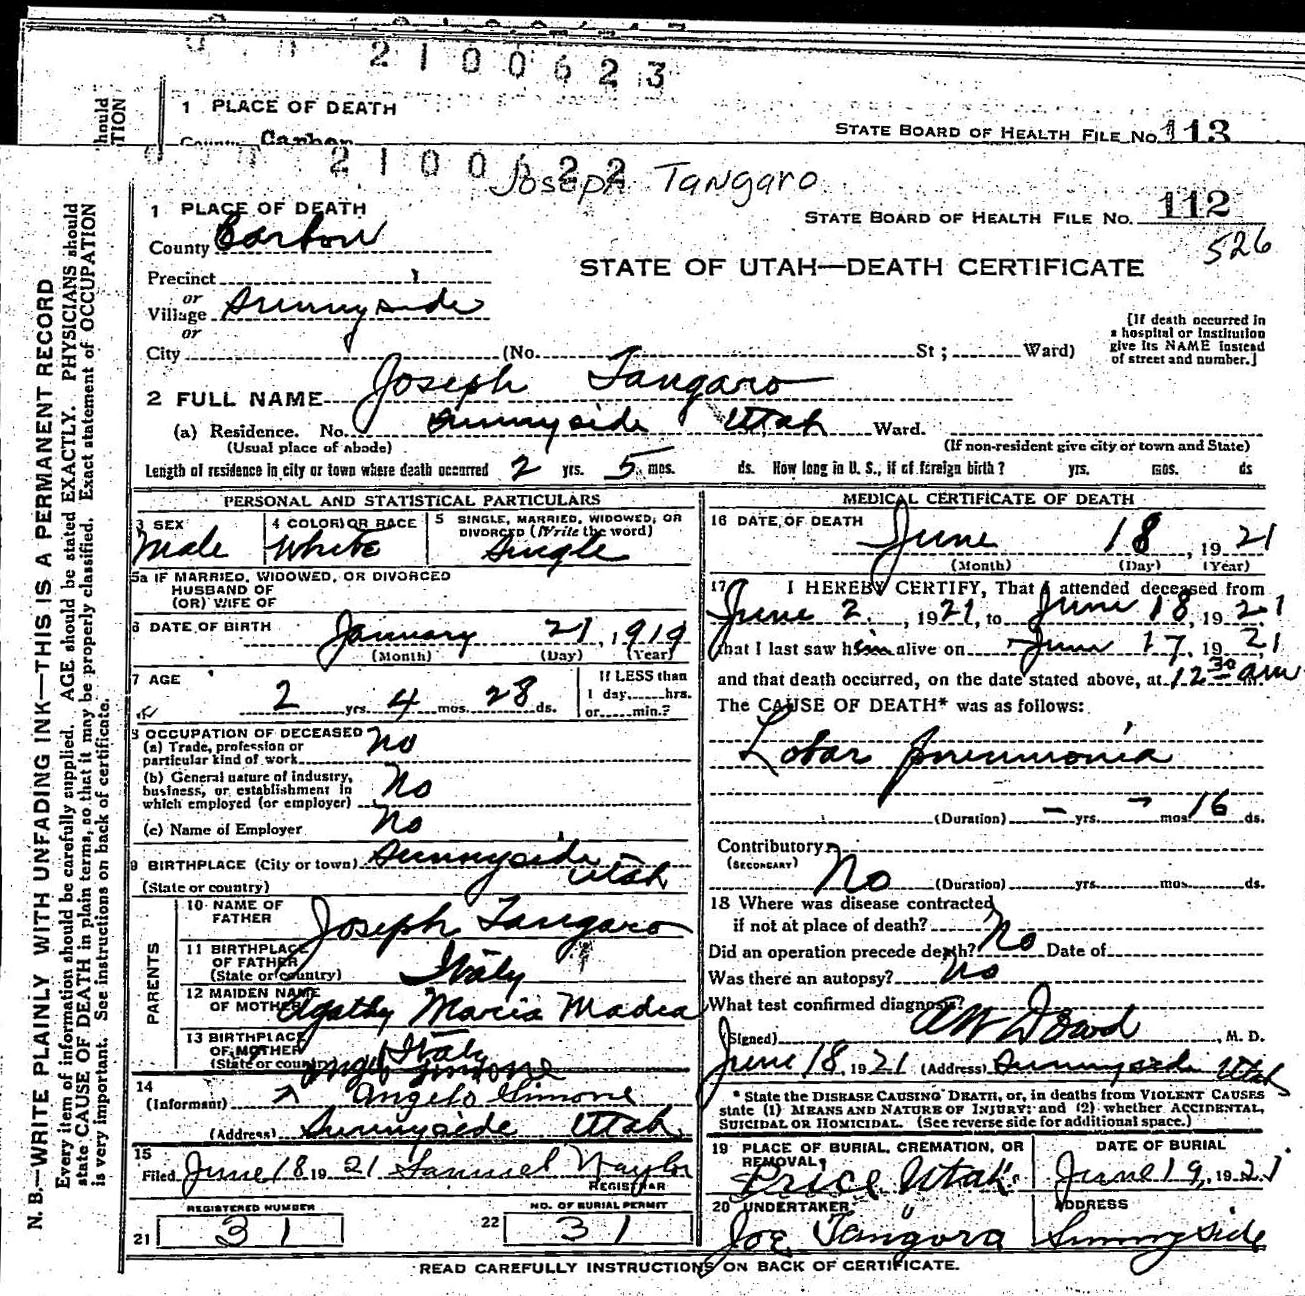 2100623
1 PLACE OF DEATH
STATE BOARD OF HEALTH FILE No. 113
County Carbon
2100622
Joseph Tangaro
1 PLACE OF DEATH
STATE BOARD OF HEALTH FILE No. 112
526
County Carbon
STATE OF UTAH—DEATH CERTIFICATE
Precinct
or
Village Sunnyside
or
[If death occurred in
a hospital or institution
give its NAME instead
of street and number.]
City (No. St; Ward)
2 FULL NAME Joseph Tangaro
(a) Residence. No. Sunnyside Utah Ward.
(Usual place of abode) (If non-resident give city or town and State)
Length of residence in city or town where death occurred 2 yrs. 5 mos. ds. How long in U. S., if of foreign birth? yrs. mos. ds
PERSONAL AND STATISTICAL PARTICULARS
3 SEX Male
4 COLOR OR RACE White
5 SINGLE, MARRIED, WIDOWED, OR
DIVORCED (Write the word)
Single
5a IF MARRIED, WIDOWED, OR DIVORCED
HUSBAND OF
(OR) WIFE OF
6 DATE OF BIRTH January 21, 1919
(Month) (Day) (Year)
7 AGE 2 yrs. 4 mos. 28 ds.
If LESS than
1 day, hrs.
or min.?
8 OCCUPATION OF DECEASED
(a) Trade, profession or
particular kind of work No
(b) General nature of industry,
business, or establishment in
which employed (or employer) No
(c) Name of Employer No
9 BIRTHPLACE (City or town) Sunnyside
(State or country) Utah
PARENTS
10 NAME OF
FATHER Joseph Tangaro
11 BIRTHPLACE
OF FATHER
(State or country) Italy
12 MAIDEN NAME
OF MOTHER Agathy Maria Madea
13 BIRTHPLACE
OF MOTHER
(State or country) Italy
Angelo Simone
14
(Informant) Angelo Simone
(Address) Sunnyside Utah
15
Filed June 18 1921 Samuel Naylor
REGISTRAR
REGISTERED NUMBER
21 31
NO. OF BURIAL PERMIT
22 31
MEDICAL CERTIFICATE OF DEATH
16 DATE OF DEATH
June 18, 1921
(Month) (Day) (Year)
17 I HEREBY CERTIFY, That I attended deceased from
June 2, 1921, to June 18, 1921
that I last saw him alive on June 17, 1921
and that death occurred, on the date stated above, at 12 30 am
The CAUSE OF DEATH* was as follows:
Lobar pneumonia
(Duration) – yrs. – mos. 16 ds.
Contributory
(SECONDARY) No (Duration) yrs. mos. ds.
18 Where was disease contracted
if not at place of death?
Did an operation precede death? No Date of
Was there an autopsy? No
What test confirmed diagnosis?
(Signed) A W Dowd, M. D.
June 18, 1921 (Address) Sunnyside Utah
* State the DISEASE CAUSING DEATH, or, in deaths from VIOLENT CAUSES
state (1) MEANS AND NATURE OF INJURY; and (2) whether ACCIDENTAL,
SUICIDAL OR HOMICIDAL. (See reverse side for additional space.)
19 PLACE OF BURIAL, CREMATION, OR
REMOVAL
Price Utah
DATE OF BURIAL
June 19, 1921
20 UNDERTAKER
Joe Tangora
ADDRESS
Sunnyside
READ CAREFULLY INSTRUCTIONS ON BACK OF CERTIFICATE.
N. B.—WRITE PLAINLY WITH UNFADING INK—THIS IS A PERMANENT RECORD
Every item of information should be carefully supplied. AGE should be stated EXACTLY. PHYSICIANS should
state CAUSE OF DEATH in plain terms, so that it may be properly classified. Exact statement of OCCUPATION
is very important. See instructions on back of certificate.